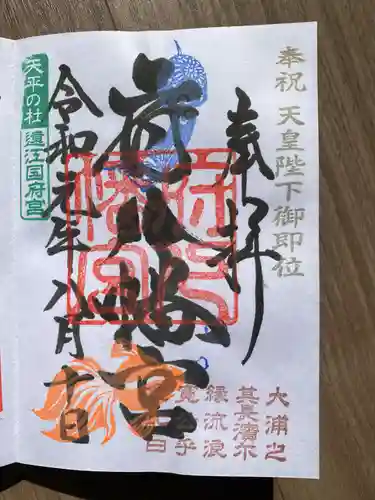 奉祝 天皇陛下御即位
奉拝
府八幡宮
府八幡宮
令和元年八月十日
天平の杜 遠江国府宮
大浦之
其長濱尓
縁流浪
寛公乎